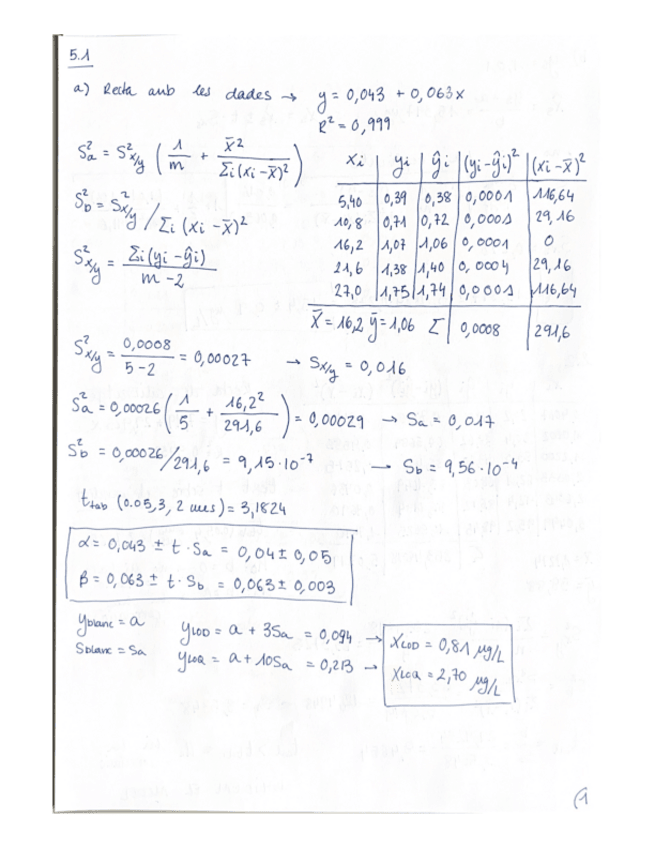 5.1
a) Recta amb les dades → y = 0,043 + 0,063x
R² = 0,999
S²a = S²x/y ( 1/m + x̄² / Σi(xi - x̄)² )
S²b = S²x/y / Σi (xi - x̄)²
S²x/y = Σi(yi - ŷi) / m - 2
xi yi ŷi (yi - ŷi)² (xi - x̄)²
5,40 0,39 0,38 0,0001 116,64
10,8 0,71 0,72 0,0001 29,16
16,2 1,07 1,06 0,0001 0
21,6 1,38 1,40 0,0004 29,16
27,0 1,75 1,74 0,0001 116,64
x̄ = 16,2 ȳ = 1,06 Σ 0,0008 291,6
S²x/y = 0,0008 / 5 - 2 = 0,00027 → Sx/y = 0,016
S²a = 0,00026 ( 1/5 + 16,2² / 291,6 ) = 0,00029 → Sa = 0,017
S²b = 0,00026 / 291,6 = 9,15·10⁻⁷ → Sb = 9,56·10⁻⁴
ttab (0.05, 3, 2 cues) = 3,1824
α = 0,043 ± t · Sa = 0,04 ± 0,05
β = 0,063 ± t · Sb = 0,063 ± 0,003
yblanc = a yLOD = a + 3Sa = 0,094 → xLOD = 0,81 µg/L
Sblanc = Sa yLOQ = a + 10Sa = 0,213 → xLOQ = 2,70 µg/L
(1